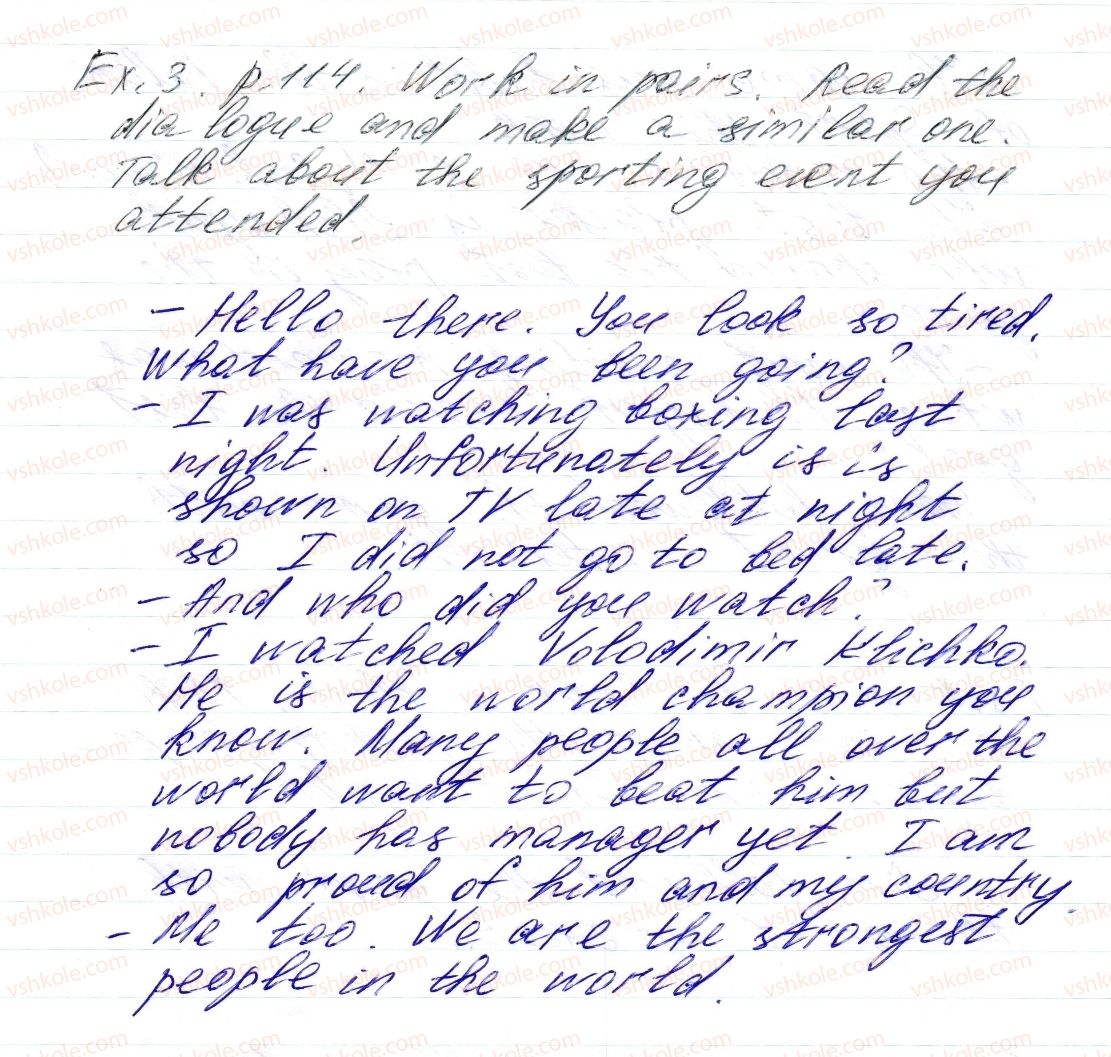 Ex. 3. p. 114. Work in pairs. Read the
dialogue and make a similar one.
Talk about the sporting event you
attended.
- Hello there. You look so tired.
What have you been going?
- I was watching boxing last
night. Unfortunately is is
shown on TV late at night
so I did not go to bed late.
- And who did you watch?
- I watched Volodimir Klichko.
He is the world champion you
know. Many people all over the
world want to beat him but
nobody has manager yet. I am
so proud of him and my country.
- Me too. We are the strongest
people in the world.